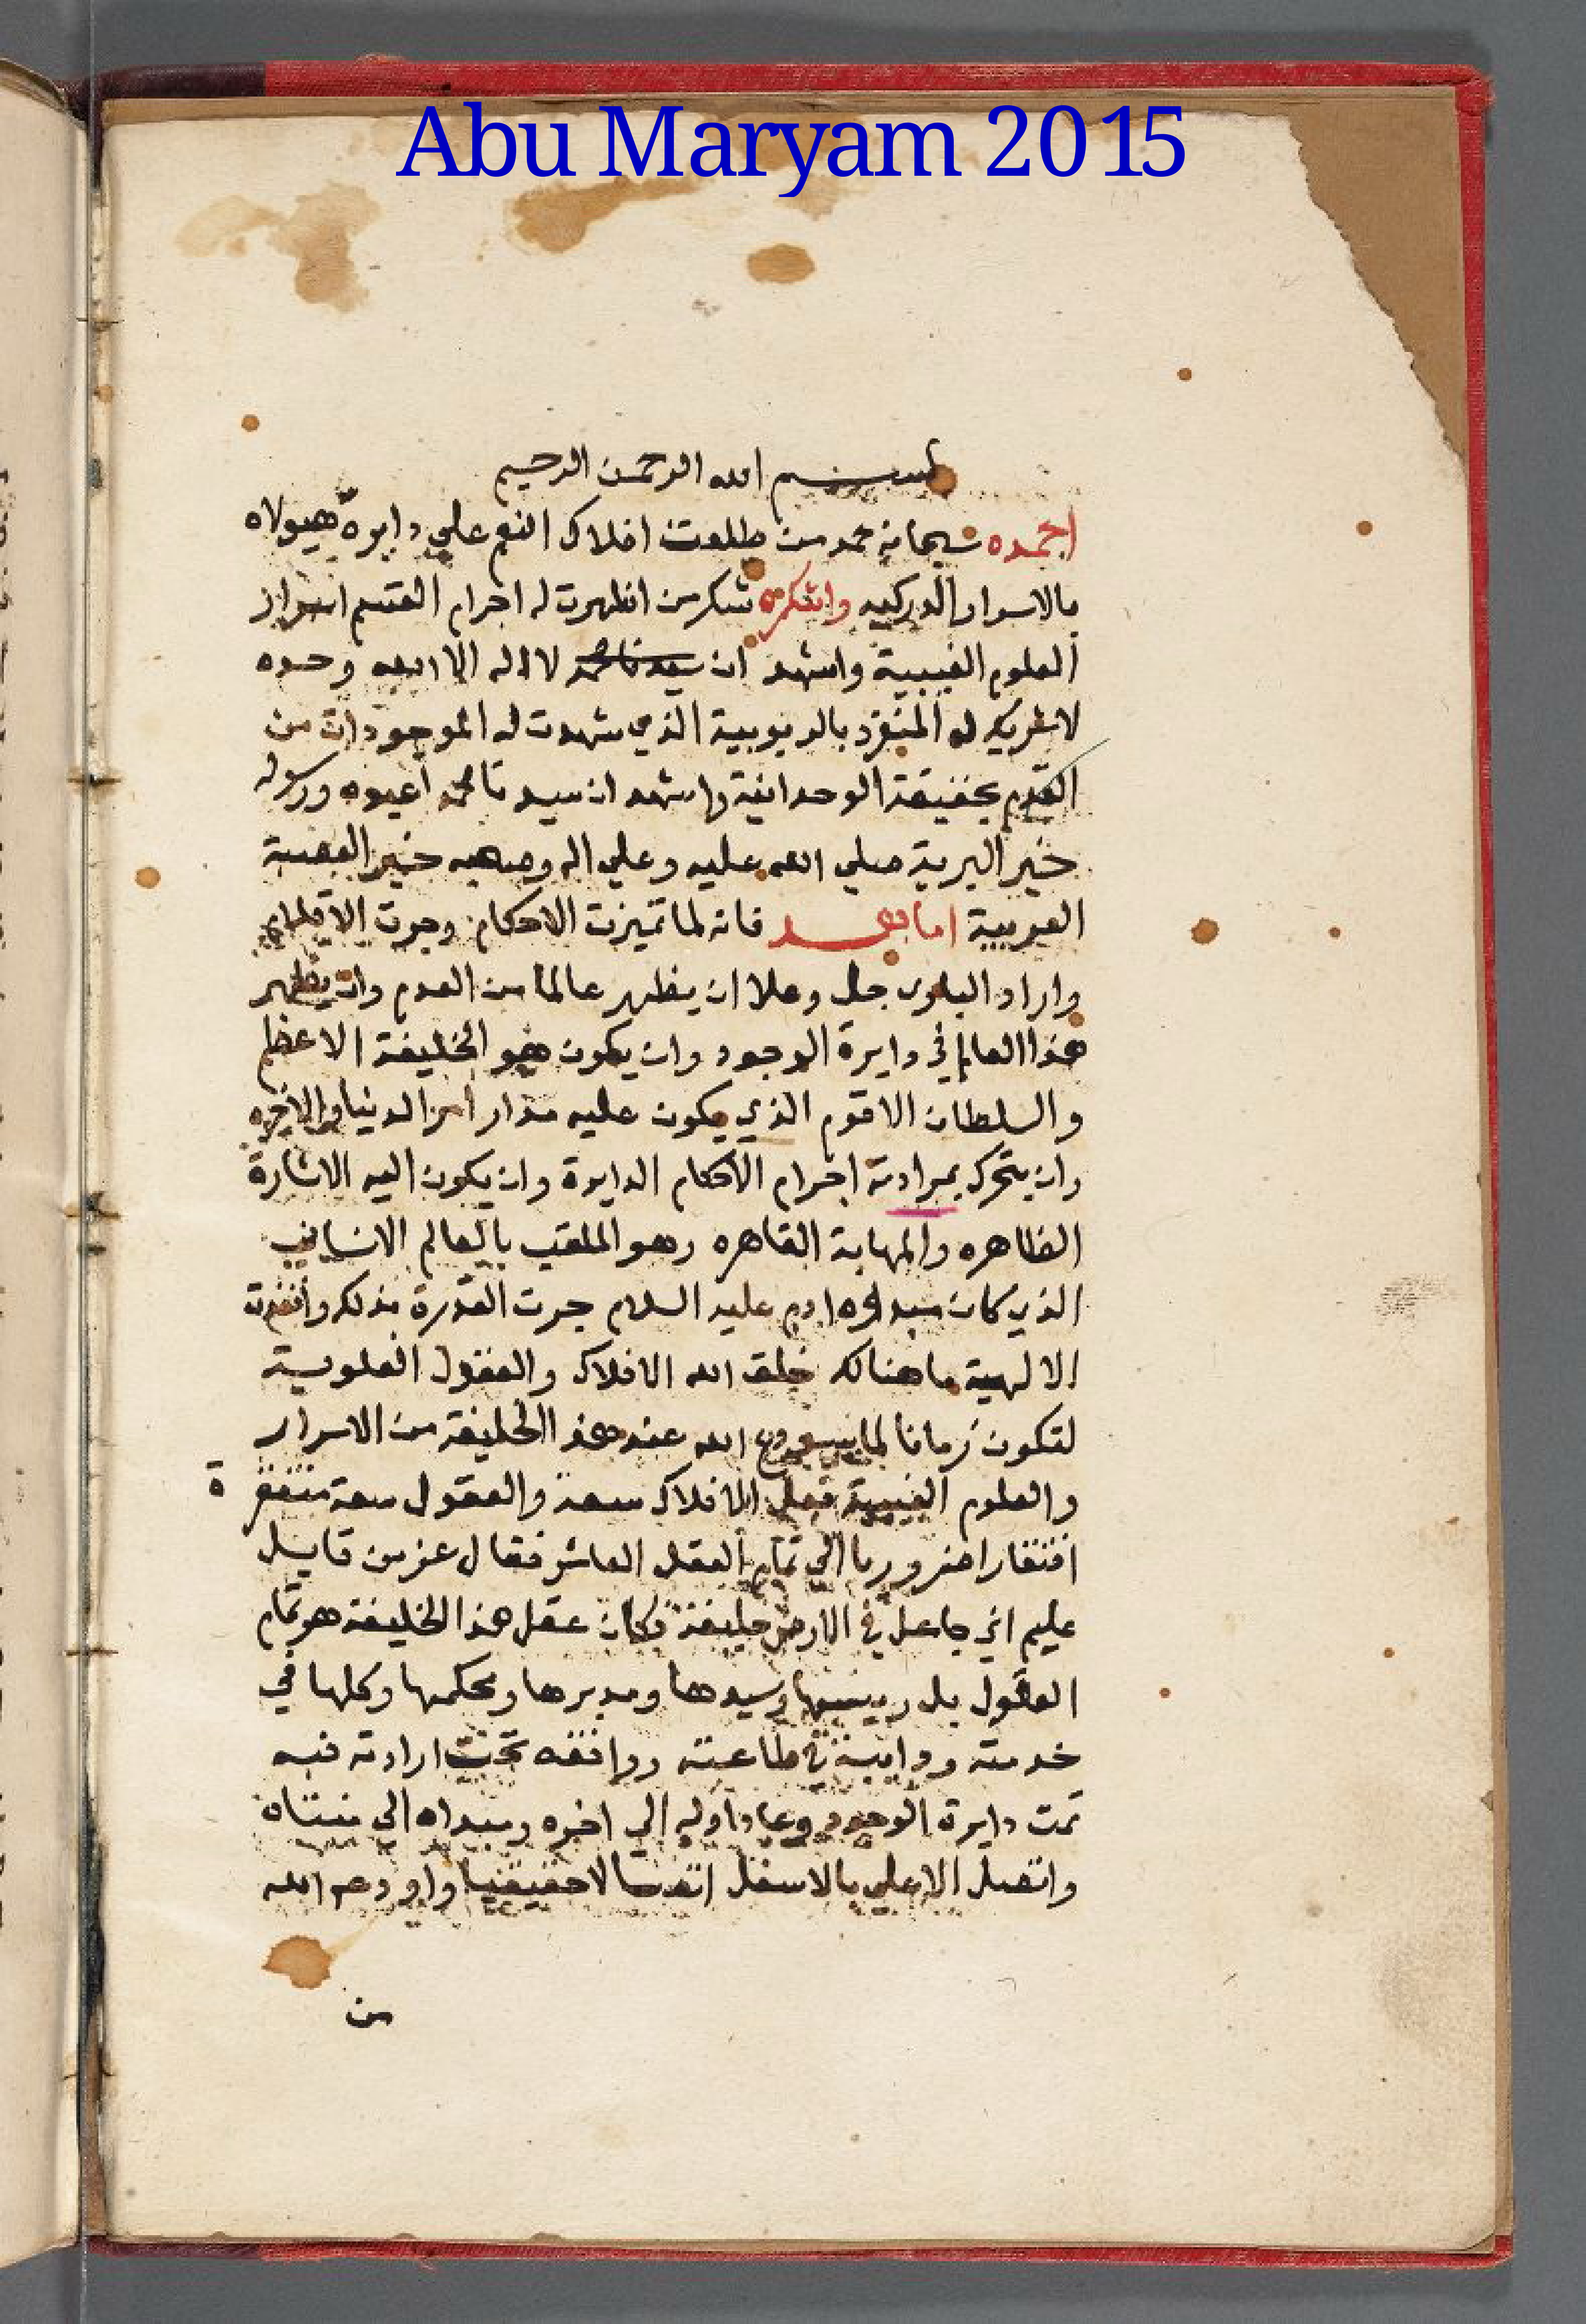 Abu Maryam 2015
بسم الله الرحمن الرحيم
احمده سبحانه حمد من طلعت افلاك النعم علي دايرة هيولاه
بالاسرار واشكره شكر من اظهرت له اجرام القسم اسرار
العلوم الغيبية واشهد ان سيدنا محمد لا اله الا الله وحده
لا شريك له المنفرد بالربوبية الذي شهدت له الموجودات من
القدم بحقيقة الوحدانية واشهد ان سيدنا محمدا عبده ورسوله
خير البرية صلي الله عليه وعلي اله وصحبه خير العصبة
العربية اما بعد فانه لما تميزت الاحكام وجرت الاقلام
واراد الباري جل وعلا ان يظهر عالما من العدم وان يظهر
هذا العالم في دايرة الوجود وان يكون هو الخليفة الاعظم
والسلطان الاقوم الذي يكون عليه مدار امر الدنيا والاخره
وان يتحرك بمرادته اجرام الاحكام الدايرة وان يكون اليه الاشارة
الظاهره والمهابة القاهره وهو الملقب بالعالم الانساني
الذي كان مبداوه ادم عليه السلام جرت القدرة بذلك
الالهية ما هنالك خلق الله الافلاك والعقول العلوية
لتكون زمانا لما الله عند هذا الخليفة من الاسرار
والعلوم الغيبية الافلاك سعة والعقول سعة مفتقرة
افتقارا ضروريا الي تمام العقل العاشر فقال عز من قايل
عليم اني جاعل في الارض خليفة فكان عقل هذا الخليفة هو تمام
العقول بل رييسها وسيدها ومدبرها ومحكمها وكلها في
خدمته ودايبة في طاعته وواقفه تحت ارادته فبه
تمت دايرة الوجود وعاد اوله الي اخره ومبداه الي منتهاه
واتصل الاعلي بالاسفل اتصالا حقيقيا واودعه الله
من